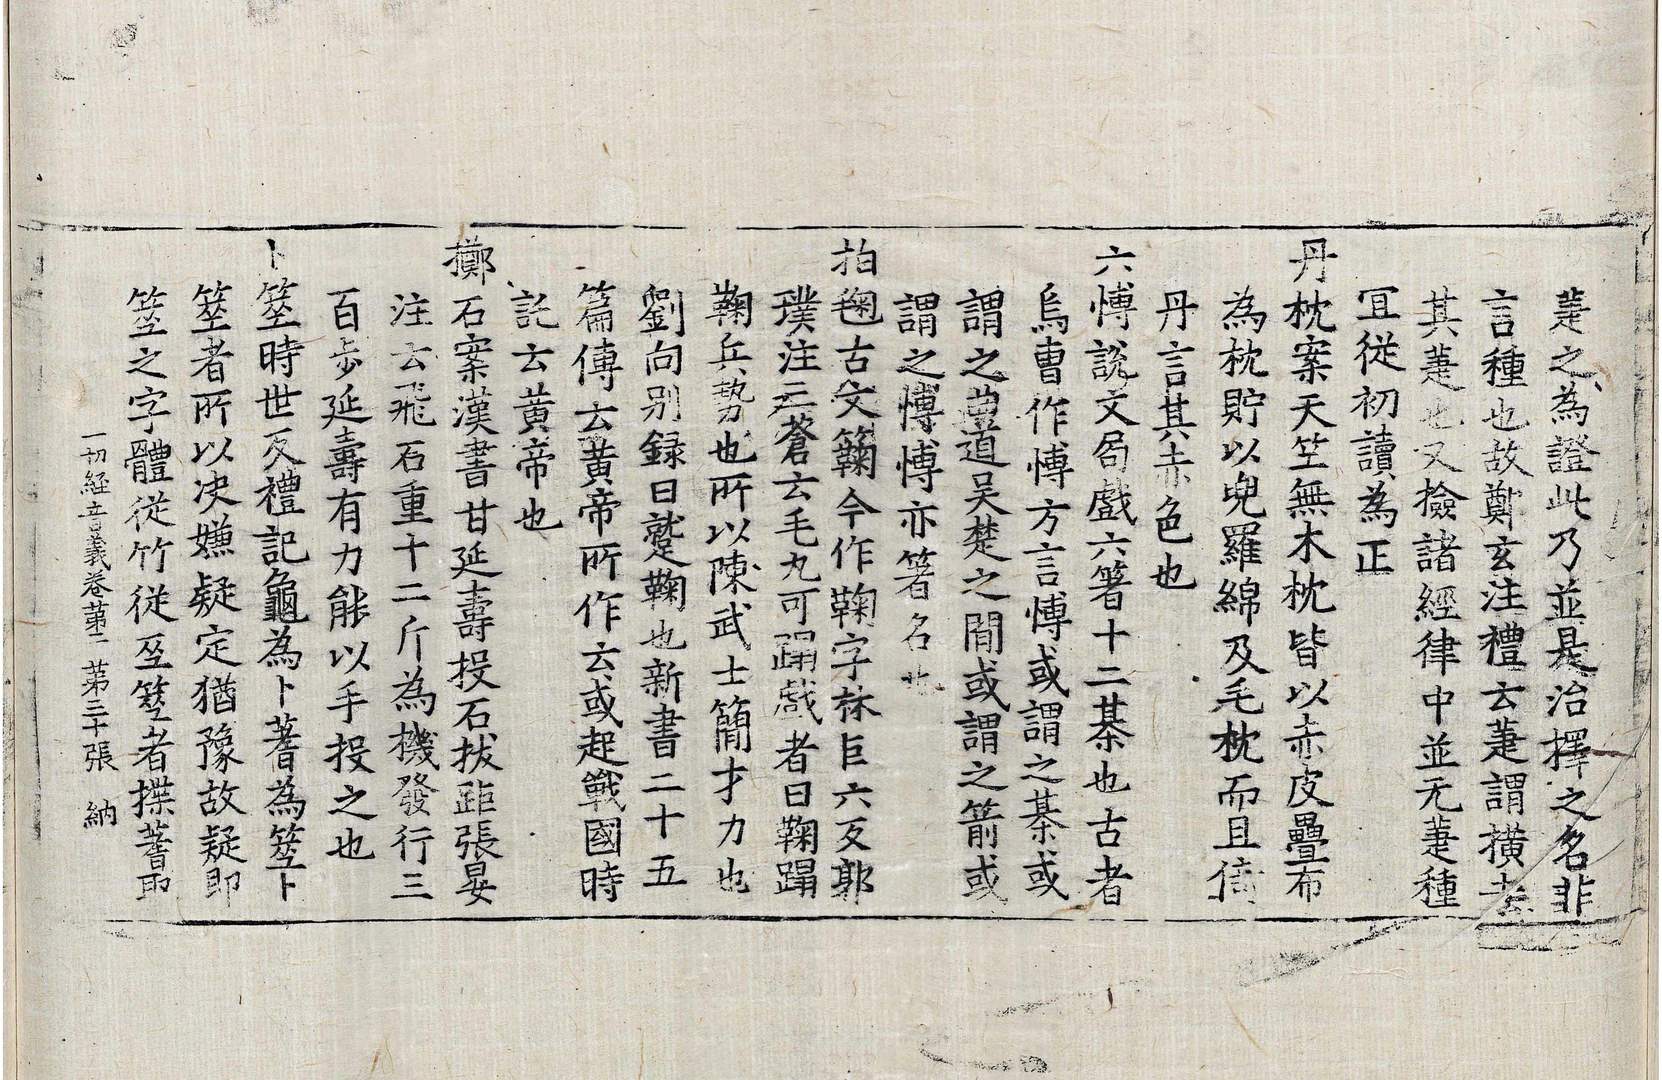 萐之為證此乃並是治擇之名非
言種也故鄭玄注禮云萐謂横去
其萐也又撿諸經律中並无萐種
冝從初讀為正
丹枕案天竺無木枕皆以赤皮疊布
為枕貯以兜羅綿及毛枕而且倚
丹言其赤色也
六愽說文局戲六箸十二棊也古者
烏曺作愽方言愽或謂之棊或
謂之𥴧道吴楚之間或謂之箭或
謂之愽愽亦箸名也
拍毱古文䪗今作鞠字林巨六反郭
璞注三蒼云毛丸可蹋戲者曰鞠蹋
鞠兵勢也所以陳武士簡才力也
劉向别録曰蹵鞠也新書二十五
篇傳云黄帝所作云或起戰國時
託云黄帝也
擲石案漢書甘延壽投石拔距張晏
注云飛石重十二斤為機發行三
百步延壽有力能以手投之也
卜筮時世反禮記龜為卜蓍為筮卜
筮者所以决嫌疑定猶豫故疑即
筮之字體從竹從巫筮者揲蓍取
一切經音義卷苐二 苐三十張 納